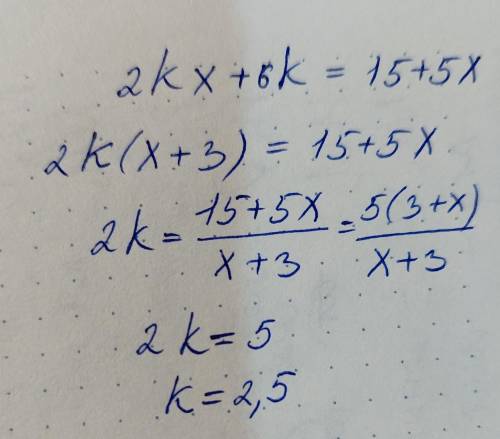 2kx+6k = 15+5x
2k(x+3) = 15+5x
2k = \frac{15+5x}{x+3} = \frac{5(3+x)}{x+3}
2k = 5
k = 2,5